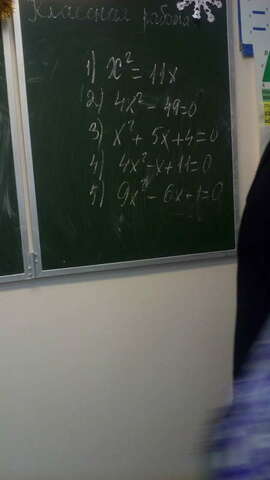 Классная работа
1) x² = 11x
2) 4x² - 49=0
3) x² + 5x+4=0
4) 4x²-x+11=0
5) 9x² - 6x+1=0